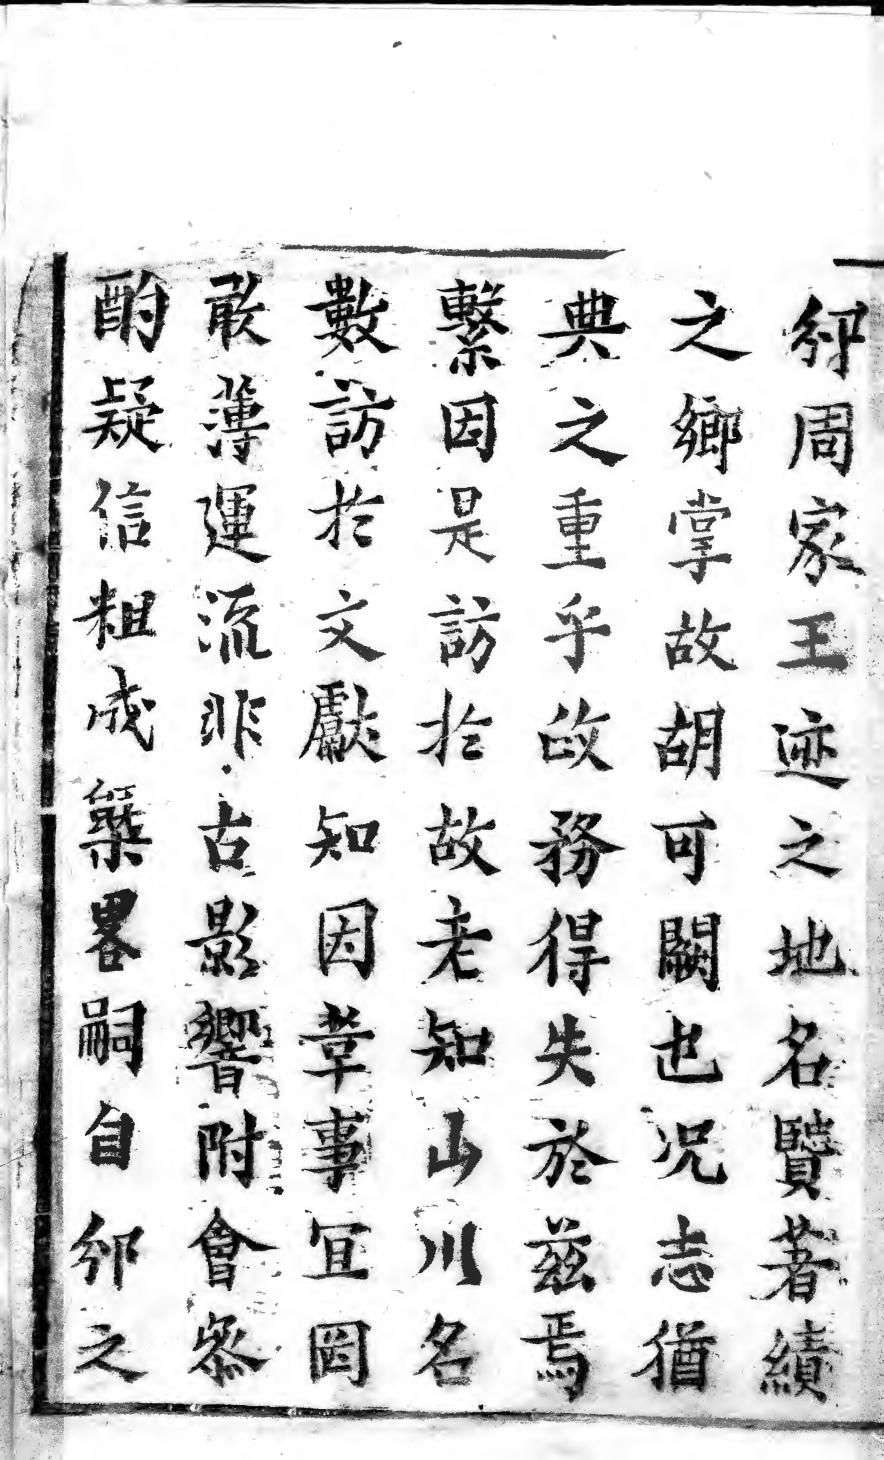 邠周家王迹之地名賢著績
之鄉掌故胡可闕也况志猶
典之重乎政務得失於兹焉
繫因是訪扵故老知山川名
數訪扵文獻知因革事冝罔
敢薄運流非古影響附會叅
酌疑信粗成槩畧嗣自邠之